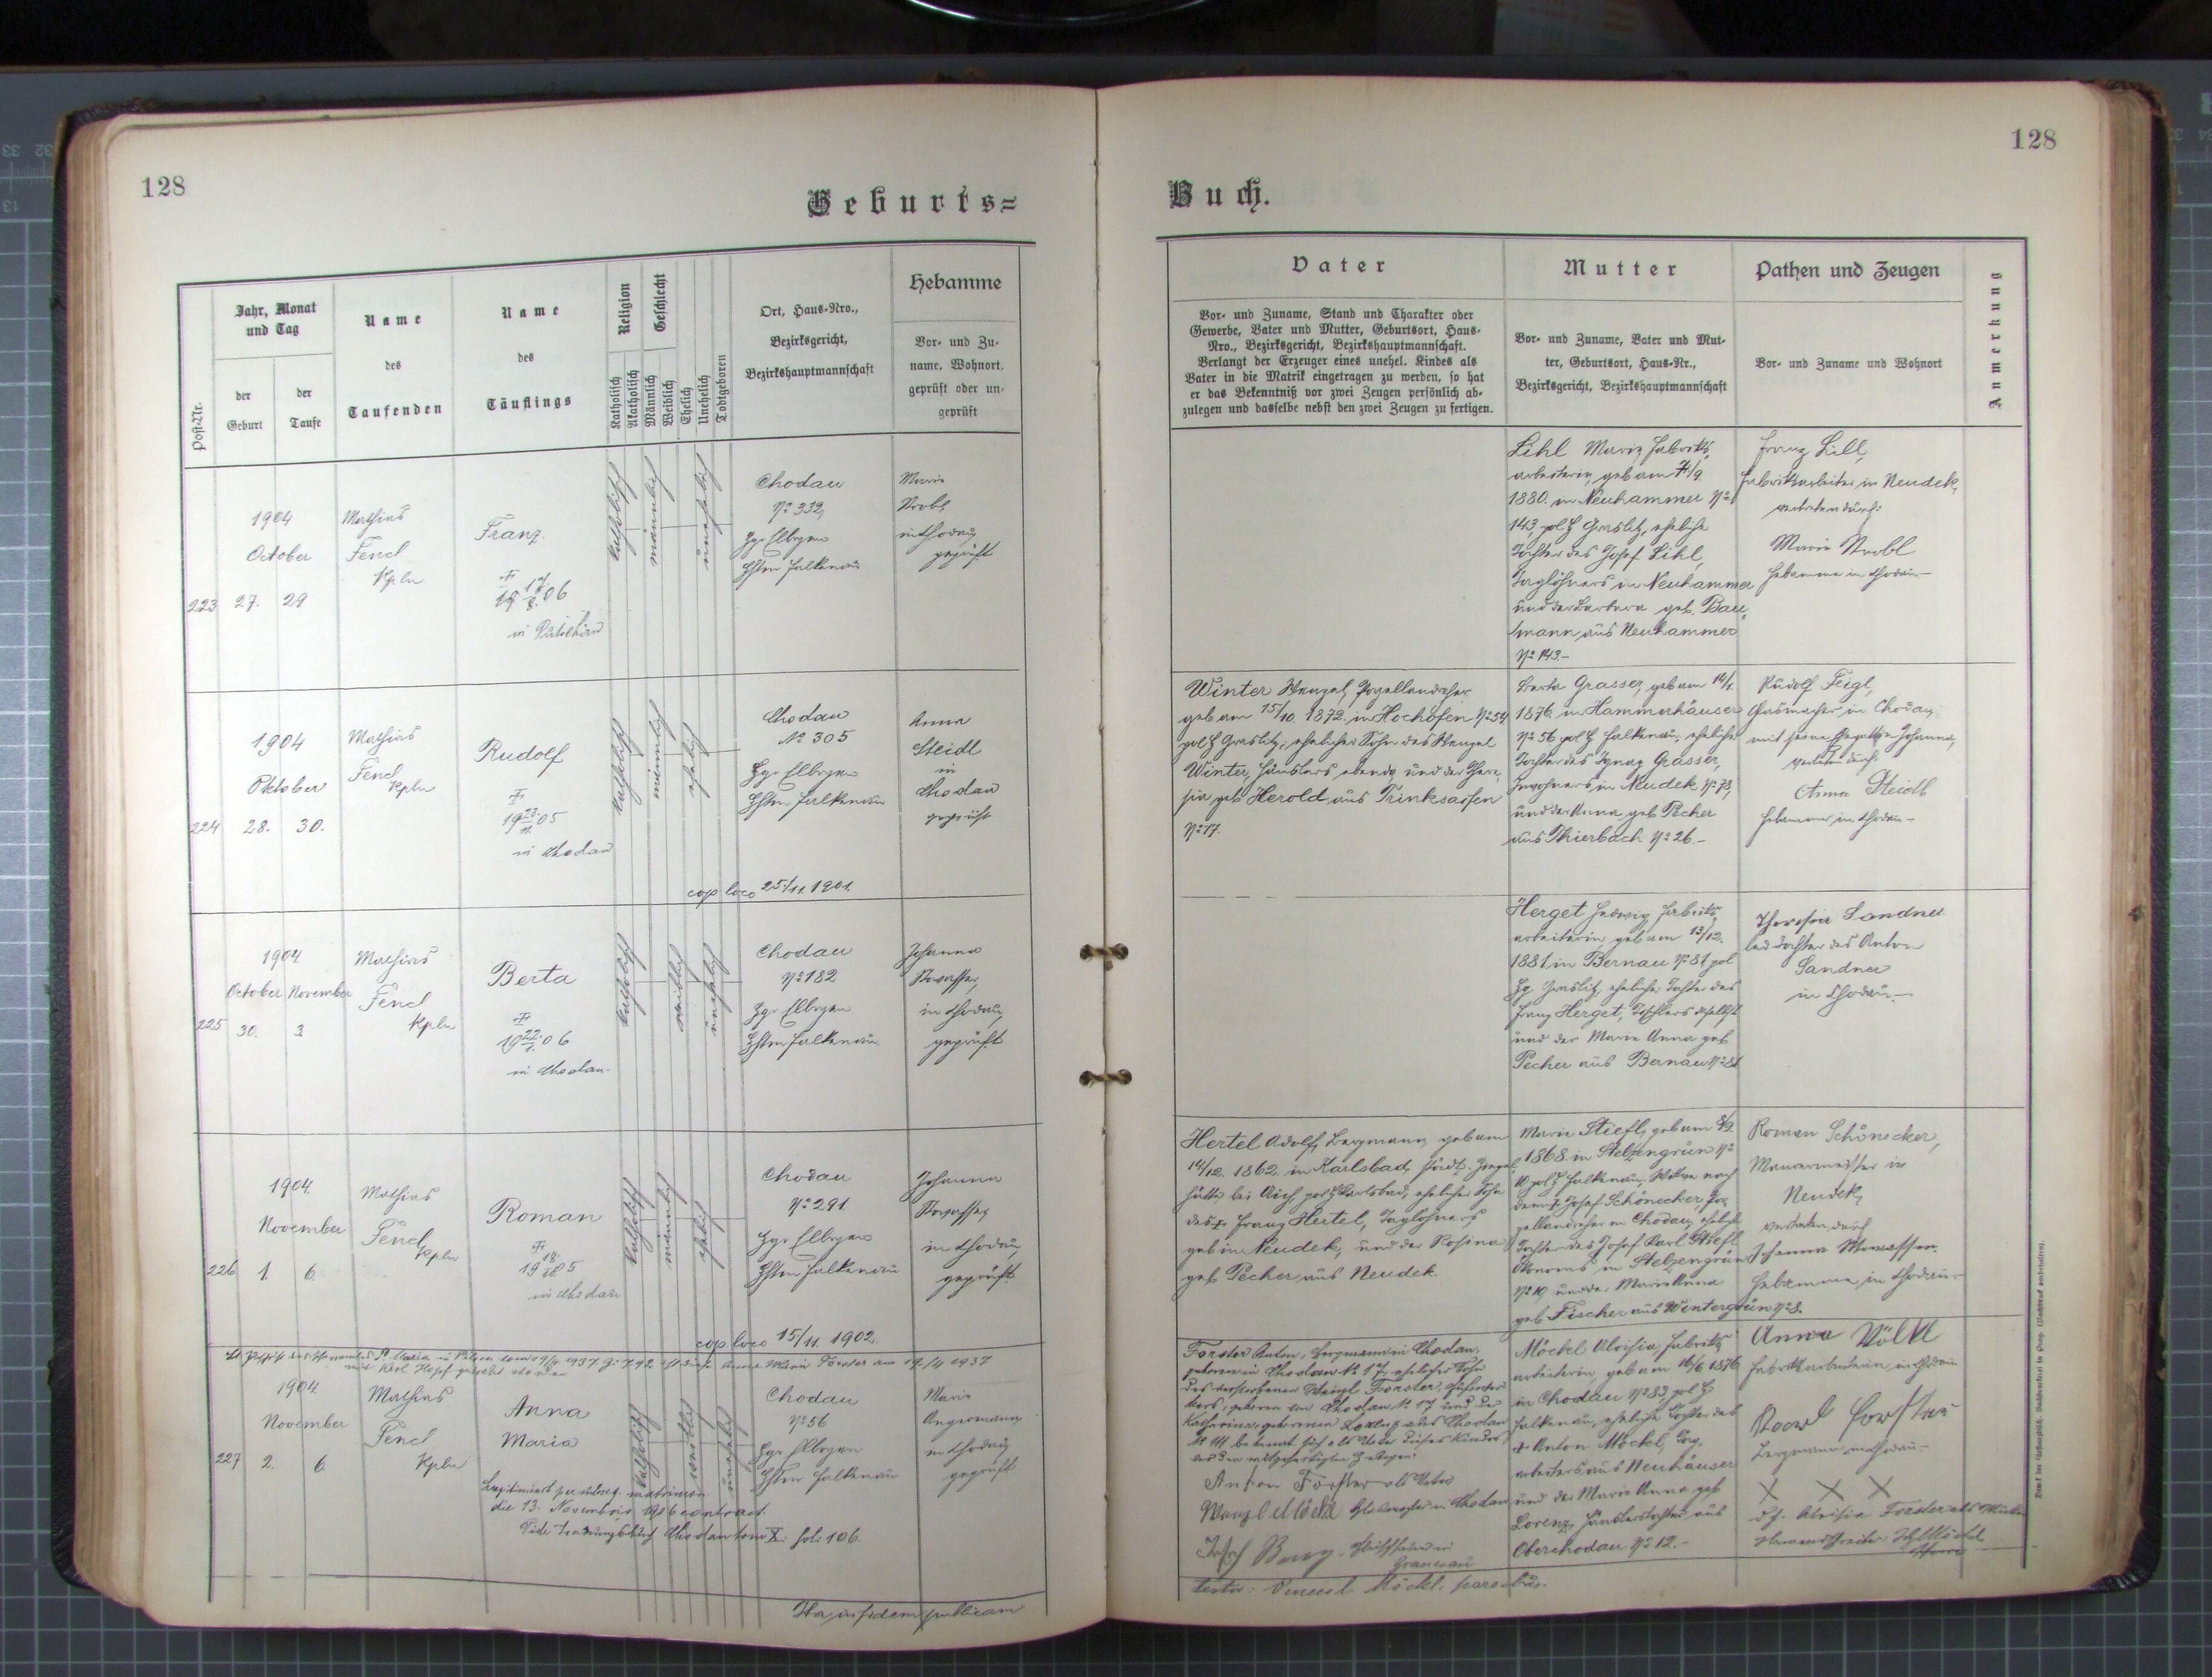 128
Geburts=
Jahr, Monat
und Tag
Name
des
Taufenden
Name
des
Täuflings
Religion
Geschlecht
Ort, Haus-Nro.,
Bezirksgericht,
Bezirkshauptmannschaft
Hebamme
Vor- und Zu-
name, Wohnort,
geprüft oder un-
geprüft
Post-Nr.
der
Geburt
der
Taufe
Katholisch
Akatholisch
Männlich
Weiblich
Ehelich
Unehelich
Todtgeboren
1904
October
223 27. 29
Mathias
Fencl
Kpln
Franz
in
katholisch
männlich
unehelich
Chodau
No 332,
Bzgr Elbogen
Bhptm Falkenau
Marie
Strobl
in Chodau,
geprüft
1904
Oktober
224 28. 30.
Mathias
Fencl
Kpln
Rudolf
19 23/11. 05
in Chodau
katholisch
männlich
ehelich
Chodau
No 305
Bzgr Elbogen
Bhptm Falkenau
cop loco 25/11 1901.
Anna
Steidl
in
Chodau
geprüft
1904
October November
225 30. 3
Mathias
Fencl
Kpln
Berta
19 22/1. 06
in Chodau.
katholisch
weiblich
unehelich
Chodau
No 182
Bzgr Elbogen
Bhptm Falkenau
Johanna
in Chodau,
geprüft
1904.
November
226 1. 6.
Mathias
Fencl
Kpln
Roman
in Chodau
katholisch
männlich
ehelich
Chodau
No 291
Bzgr Elbogen
Bhptm Falkenau
cop loco 15/11. 1902.
Johanna
in Chodau,
geprüft
Anna Maria Förster am 19/4 1937
mit Karl
1904.
November
227 2. 6.
Mathias
Fencl
Kpln
Anna
Maria
katholisch
weiblich
unehelich
Chodau
No 56
Bzgr Elbogen
Bhptm Falkenau
Marie
Angermann
in Chodau,
geprüft
Legitimiert per subseq. matrimon
die 13. Novembris 1906 contract.
Vide Trauungsbuch Chodau tom X. fol. 106.
Ita in fidem publicam
128
Buch.
Vater
Vor- und Zuname, Stand und Charakter oder
Gewerbe, Vater und Mutter, Geburtsort, Haus-
Nro., Bezirksgericht, Bezirkshauptmannschaft.
Verlangt der Erzeuger eines unehel. Kindes als
Vater in die Matrik eingetragen zu werden, so hat
er das Bekenntniß vor zwei Zeugen persönlich ab-
zulegen und dasselbe nebst den zwei Zeugen zu fertigen.
Mutter
Vor- und Zuname, Vater und Mut-
ter, Geburtsort, Haus-Nr.,
Bezirksgericht, Bezirkshauptmannschaft
Pathen und Zeugen
Vor- und Zuname und Wohnort
Anmerkung
Lihl Maria Fabriks-
arbeiterin, geb am
1880. in Neuhammer No
143, pol B Graslitz, eheliche
Tochter des Josef Lihl,
Taglöhners in Neuhammer
und der Barbara geb. Bau-
mann aus Neuhammer
No 143.-
Franz Lill,
Fabriksarbeiter in Neudek,
vertreten durch:
Marie Strobl
Hebamme in Chodau-
Winter Wenzel, Porzellandreher
geb am 15/10. 1872. in Hochofen No 54
pol B Graslitz, ehelicher Sohn des Wenzel
Winter, Häuslers, ebenda, und der There-
sia geb Herold aus Trinksaifen
No 17.
Berta Grasser, geb am 14/1.
1876 in Hammerhäuser
No 56 pol B Falkenau, eheliche
Tochter des Ignaz Grasser,
Inwohners in Neudek No 73,
und der Anna, geb Pecher
aus Thierbach No 26.-
Rudolf Feigl,
Glasmacher in Chodau,
mit seiner Gegattin Johanna,
vertreten durch:
Anna Steidl
Hebamme in Chodau-
Herget Hedwig, Fabriks-
arbeiterin, geb am 13/12.
1881 in Bernau No 81 pol
Bz. Graslitz, eheliche Tochter des
Franz Herget, Tischlers daselbst
und der Marie Anna geb
Pecher aus Bernau No 81
Theresia Sandner
led. Tochter des Anton
Sandner
in Chodau.-
Hertel Adolf, Bergmann, geb am
14/12. 1862. in Karlsbad, städt. Ziegel-
hütte bei Aich, pol B Karlsbad, ehelicher Sohn
des Franz Hertel, Taglöhners,
geb in Neudek, und der Rosina
geb Pecher aus Neudek.
Marie Stiefl, geb am 8/9.
1868. in Stelzengrün No
10 pol B Falkenau, Witwe nach
dem Josef Schönecker, Por-
zellandreher in Chodau, eheliche
Tochter des Josef Karl Stiefl
Ökonoms in Stelzengrün
No 10, und der Marie Anna
geb Fischer aus Wintergrün No 3.
Roman Schönecker,
Maurermeister in
Neudek,
vertreten durch
Johanna
Hebamme in Chodau.-
Forster Anton, Bergmann in Chodau,
geboren in Chodau No 17, ehelicher Sohn
des verstorbenen Wenzl Forster,
geboren in Chodau No 17 und der
Katharina, geborenen Lorenz aus Chodau
bekennt sich als Vater dieses Kindes
vor den mitgefertigten Zeugen.
Anton Forster als Vater
Wenzl Möckl in Chodau
Josef
Granesau
Testor: Möckl, parochus.
Möckl Aloisia Fabriks-
arbeiterin, geb am 16/6 1876
in Chodau No 83, pol B
Falkenau, eheliche Tochter des
Anton Möckl,
arbeiters aus Neuhäuser
und der Maria Anna geb
Lorenz, Häuslerstochter aus
Oberchodau No 12.-
Anna Völkl
Fabriksarbeiterin in Chodau
Forster
Bergmann in Chodau-
X X X
Aloisia Forster als Mutter